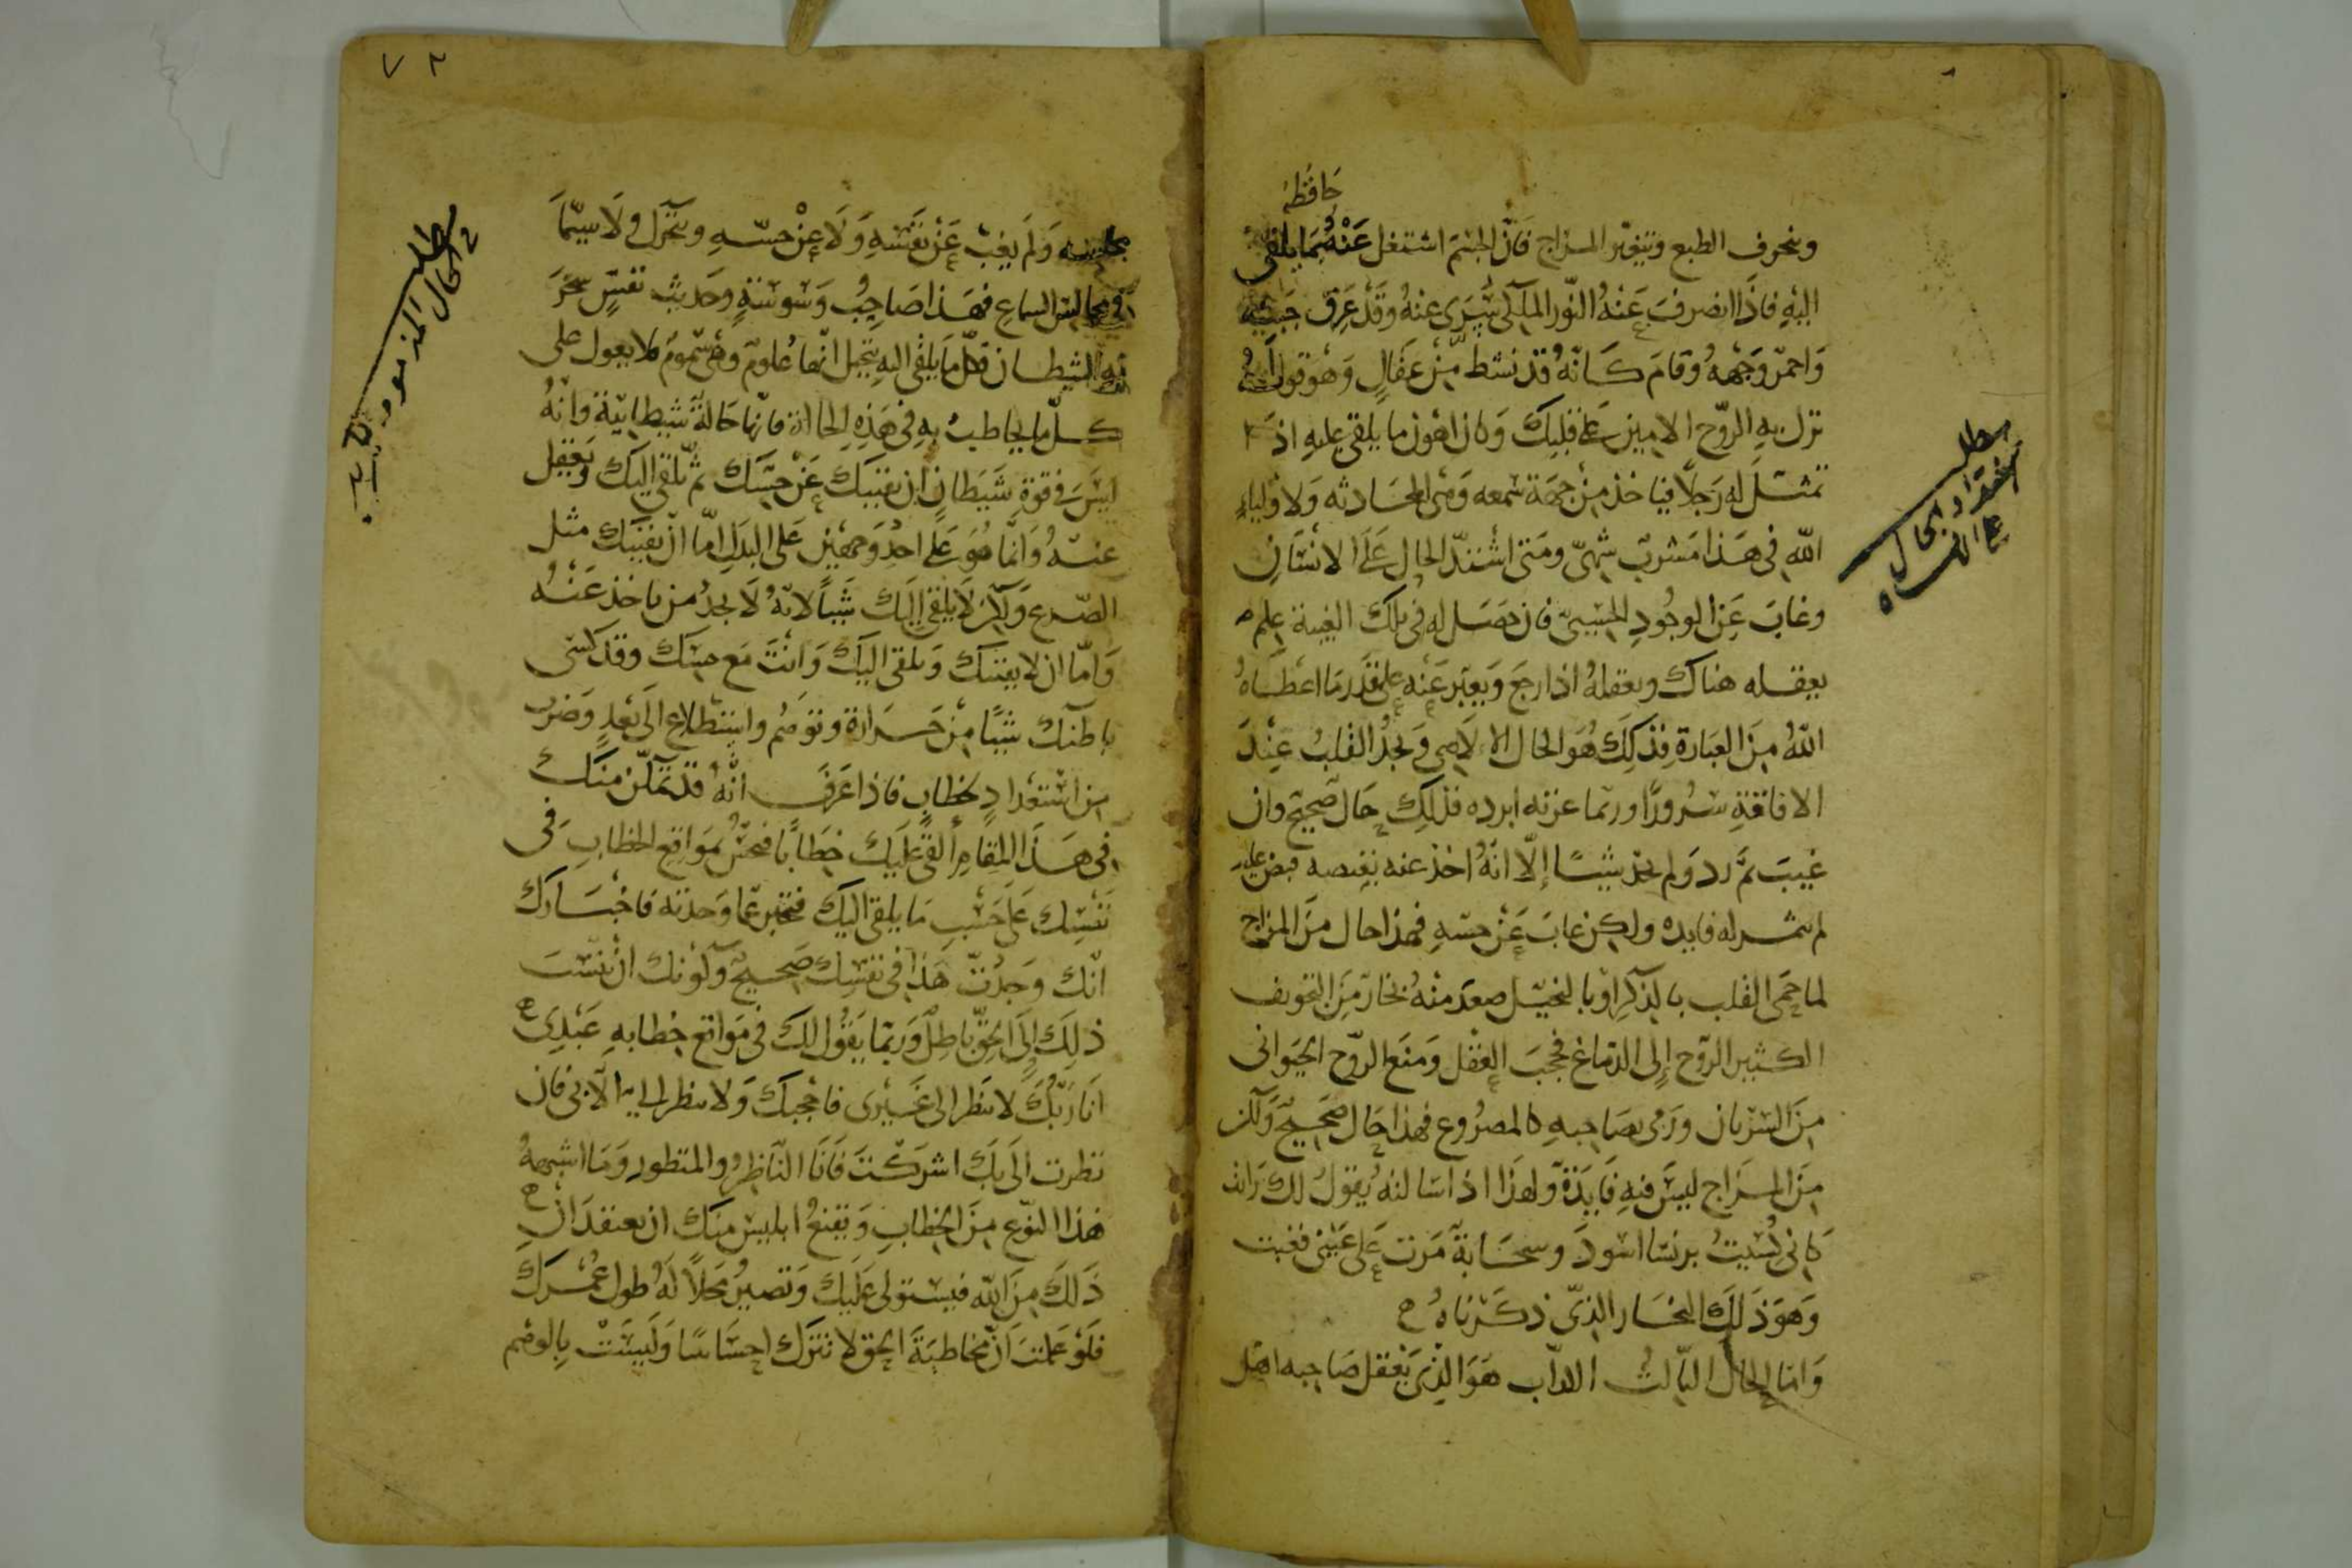 حافظه
وينحرف الطبع ويتغيّر المزاج فانّ الجسم اشتغل عنه بما يلقى
اليه فاذا انصرف عنه النّور الملكى سرى عنه وقد عرق جبينه
واحمرّ وجهه وقام كانّه قد نشط من عقال وهو قوله
نزل به الرّوح الامين على قلبك وكان اهون ما يلقى عليه اذا
تمثل له رجلا فياخذ من جهة سمعه وهى المحادثه ولاولياء
الله فى هذا مشرب شهىّ ومتى اشتدّ الحال على الانسان
وغاب عن الوجود الحسىّ فان حصل له فى تلك الغيبة علم
يعقله هناك ويعقله اذا رجع ويعبّر عنه على قدر ما اعطاه
الله من العبارة فذلك هو الحال الالاهى ويجد القلب عند
الافاقة سرورا وربّما عزته ابرده فذلك حال صحيح وان
غيب ثمّ ردّ ولم يجد شيئا إلّا انّه اخذ عنه بغيبة قبض عليه
لم يثمر له فايده ولكن غاب عن حسّه فهذا حال من المزاج
لما حمى القلب بالذكر او بالتخيّل صعد منه بخار من التجويف
الكثير الرّوح إلى الدّماغ فحجب العقل ومنع الرّوح الحيوانى
من السريان ورمى بصاحبه كالمصروع فهذا حال صحيح ولكن
من المزاج ليس فيه فايدة ولهذا اذا سالته يقول لك رايت
كانى كسيت برنسا اسود وسحابة مرت على عينى فغبت
وهو ذلك البخار الذى ذكرناه
وامّا الحال الثّالث الداب هو الذى يعقل صاحبه اهل
مطلب
على الانسان
مجلسه ولم يغب عن نفسه ولا عن حسّه ويتحرّك ولا سيّما
فى مجالس السماع فهذا صاحب وسوسة وحديث نفس سخر
به الشيطان فكلّ ما يلقى اليه يتخيل انها علوم وهى سموم فلا يعول على
كلّ ما يخاطب به فى هذه الحالة فانّها حالة شيطانيّة وانه
ليس فى قوة شيطان ان يغيبك عن حسّك ثم يلقى اليك وتعقل
عنه وانّما هو على احد وجهين على البدل امّا ان يغيبك مثل
الصّرع ولكن لا يلقى إليك شيئا لانّه لا يجد من ياخذ عنه
وامّا ان لا يغيبك ويلقى اليك وانت مع حسّك وقد كسى
باطنك شيئا من حرارة وتوهم واستطلاع الى بعد وضرب
من استعداد لخطاب فاذا عرف انّه قد تمكّن منك
فى هذا المقام ألقى عليك خطابا فتحسّ بمواقع الخطاب فى
نفسك على حسب ما يلقى اليك فتخبر عمّا وجدته فاخبارك
انّك وجدت هذا فى نفسك صحيح وكونك ان نسبت
ذلك إلى الحقّ باطل وربّما يقول لك فى مواقع خطابه عبدى
انا ربّك لا تنظر الى غيرى فاحجبك ولا تنظر الىّ الّا بى فان
نظرت الىّ بك اشركت فانا النّاظر والمنظور وما اشبه
هذا النّوع من الخطاب ويقنع ابليس منك ان تعتقد انّ
ذلك من الله فيستولى عليك وتصير محلا له طول عمرك
فلو علمت انّ مخاطبة الحق لا تترك احساسا وليست بالوهم
مطلب
الحال المذمومه
٧٨